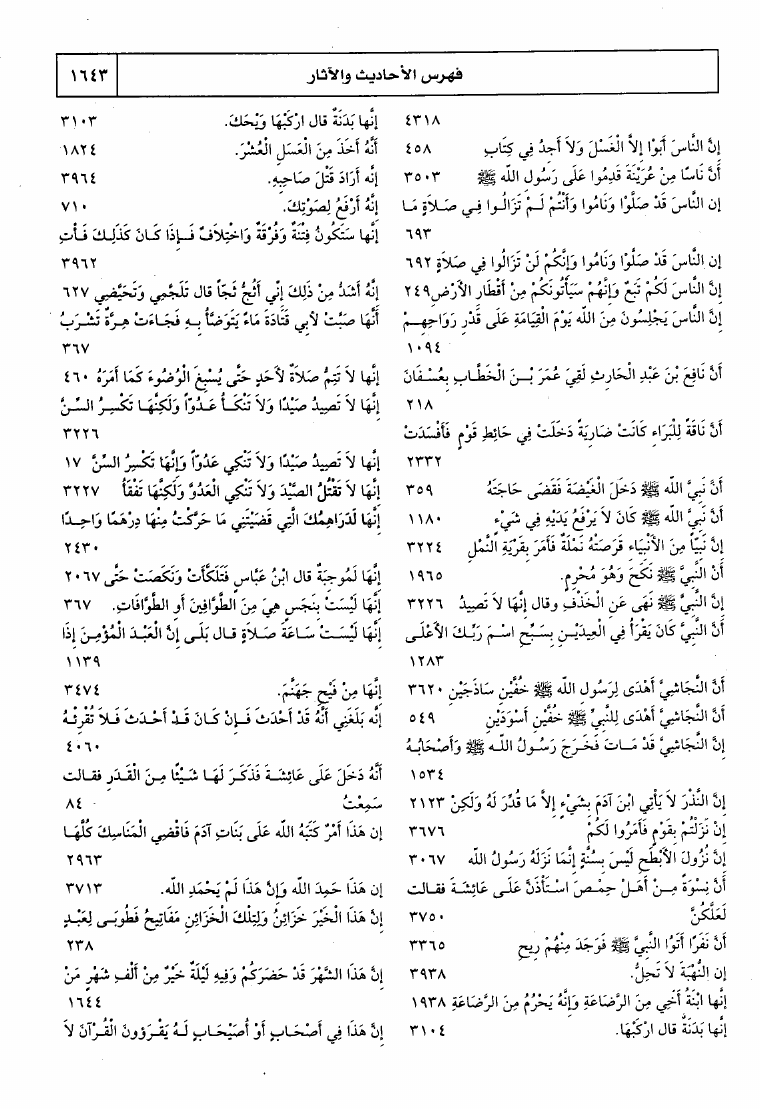 فهرس الأحاديث والآثار ١٦٤٣
٤٣١٨
إِنَّ النَّاسَ أَبَوْا إِلاَّ الْغَسْلَ وَلاَ أَجِدُ فِي كِتَابِ ٤٥٨
أَنَّ نَاسًا مِنْ عُرَيْنَةَ قَدِمُوا عَلَى رَسُولِ اللَّه ﷺ ٣٥٠٣
إن النَّاسَ قَدْ صَلَّوْا وَنَامُوا وَأَنْتُمْ لَـمْ تَزَالُـوا فِـي صَـلاَةٍ مَـا
٦٩٣
إن النَّاسَ قَدْ صَلَّوْا وَنَامُوا وَإِنَّكُمْ لَنْ تَزَالُوا فِي صَلاَةٍ ٦٩٢
إِنَّ النَّاسَ لَكُمْ تَبَعٌ وَإِنَّهُمْ سَيَأْتُونَكُمْ مِنْ أَقْطَارِ الأَرْضِ ٢٤٩
إِنَّ النَّاسَ يَجْلِسُونَ مِنَ اللَّه يَوْمَ الْقِيَامَةِ عَلَى قَدْرِ رَوَاحِهِـمْ
١٠٩٤
أَنَّ نَافِعَ بْنَ عَبْدِ الْحَارِثِ لَقِيَ عُمَرَ بْـنَ الْخَطَّـابِ بِعُسْفَانَ
٢١٨
أَنَّ نَاقَةً لِلْبَرَاءِ كَانَتْ ضَارِيَةً دَخَلَتْ فِي حَائِطِ قَوْمٍ فَأَفْسَدَتْ
٢٣٣٢
أَنَّ نَبِيَّ اللَّه ﷺ دَخَلَ الْغَيْضَةَ فَقَضَى حَاجَتَهُ ٣٥٩
أَنَّ نَبِيَّ اللَّه ﷺ كَانَ لاَ يَرْفَعُ يَدَيْهِ فِي شَيْءٍ ١١٨٠
إِنَّ نَبِيًّا مِنَ الأَنْبِيَاءِ قَرَصَتْهُ نَمْلَةٌ فَأَمَرَ بِقَرْيَةِ النَّمْلِ ٣٢٢٤
أَنَّ النَّبِيَّ ﷺ نَكَحَ وَهُوَ مُحْرِمٌ. ١٩٦٥
إِنَّ النَّبِيَّ ﷺ نَهَى عَنِ الْخَذْفِ وقال إِنَّهَا لاَ تَصِيدُ ٣٢٢٦
أَنَّ النَّبِيَّ كَانَ يَقْرَأُ فِي الْعِيدَيْـنِ بِسَبِّحِ اسْـمَ رَبِّـكَ الأَعْلَـى
١٢٨٣
أَنَّ النَّجَاشِيَّ أَهْدَى لِرَسُولِ اللَّه ﷺ خُفَّيْنِ سَاذَجَيْنِ ٣٦٢٠
أَنَّ النَّجَاشِيَّ أَهْدَى لِلنَّبِيِّ ﷺ خُفَّيْنِ أَسْوَدَيْنِ ٥٤٩
إِنَّ النَّجَاشِيَّ قَدْ مَـاتَ فَخَـرَجَ رَسُـولُ اللَّـه ﷺ وَأَصْحَابُـهُ
١٥٣٤
إِنَّ النَّذْرَ لاَ يَأْتِي ابْنَ آدَمَ بِشَيْءٍ إِلاَّ مَا قُدِّرَ لَهُ وَلَكِنْ ٢١٢٣
إِنْ نَزَلْتُمْ بِقَوْمٍ فَأَمَرُوا لَكُمْ ٣٦٧٦
إِنَّ نُزُولَ الأَبْطَحِ لَيْسَ بِسُنَّةٍ إِنَّمَا نَزَلَهُ رَسُولُ اللَّه ٣٠٦٧
أَنَّ نِسْوَةً مِـنْ أَهْـلِ حِمْـصَ اسْتَـأْذَنَّ عَلَـى عَائِشَـةَ فقـالت
لَعَلَّكُنَّ ٣٧٥٠
أَنَّ نَفَرًا أَتَوُا النَّبِيَّ ﷺ فَوَجَدَ مِنْهُمْ رِيحِ ٣٣٦٥
إن النُّهْبَةَ لاَ تَحِلُّ. ٣٩٣٨
إِنَّها ابْنَةُ أَخِي مِنَ الرَّضَاعَةِ وَإِنَّهُ يَحْرُمُ مِنَ الرَّضَاعَةِ ١٩٣٨
إِنَّها بَدَنَةٌ قال ارْكَبْهَا. ٣١٠٤
إِنَّها بَدَنَةٌ قال ارْكَبْهَا وَيْحَكَ. ٣١٠٣
أَنَّهُ أَخَذَ مِنَ الْعَسَلِ الْعُشْرَ. ١٨٢٤
إِنَّه أَرَادَ قَتْلَ صَاحِبِهِ. ٣٩٦٤
إِنَّهُ أَرْفَعُ لِصَوْتِكَ. ٧١٠
إِنَّها سَتَكُونُ فِتْنَةٌ وَفُرْقَةٌ وَاخْتِلاَفٌ فَـإِذَا كَـانَ كَذَلِـكَ فَـأْتِ
٣٩٦٢
إِنَّهُ أَشَدُّ مِنْ ذَلِكَ إِنِّي أَثُجُّ ثَجًّا قال تَلَجَّمِي وَتَحَيَّضِي ٦٢٧
أَنَّهَا صَبَّتْ لأَبِي قَتَادَةَ مَاءً يَتَوَضَّأُ بِـهِ فَجَاءَتْ هِـرَّةٌ تَشْـرَبُ
٣٦٧
إِنَّها لاَ تَتِمُّ صَلاَةٌ لأَحَدٍ حَتَّى يُسْبِغَ الْوُضُوءَ كَمَا أَمَرَهُ ٤٦٠
إِنَّهَا لاَ تَصِيدُ صَيْدًا وَلاَ تَنْكَـأُ عَـدُوًّا وَلَكِنَّهَـا تَكْسِـرُ السِّنَّ
٣٢٢٦
إِنَّها لاَ تَصِيدُ صَيْدًا وَلاَ تَنْكِي عَدُوًّا وَإِنَّهَا تَكْسِرُ السِّنَّ ١٧
إِنَّهَا لاَ تَقْتُلُ الصَّيْدَ وَلاَ تَنْكِي الْعَدُوَّ وَلَكِنَّهَا تَفْقَأُ ٣٢٢٧
إِنَّهَا لَدَرَاهِمُكَ الَّتِي قَضَيْتَنِي مَا حَرَّكْتُ مِنْهَا دِرْهَمًا وَاحِـدًا
٢٤٣٠
إِنَّهَا لَمُوجِبَةٌ قال ابْنُ عَبَّاسٍ فَتَلَكَّأَتْ وَنَكَصَتْ حَتَّى ٢٠٦٧
إِنَّهَا لَيْسَتْ بِنَجَسٍ هِيَ مِنَ الطَّوَّافِينَ أَوِ الطَّوَّافَاتِ. ٣٦٧
إِنَّهَا لَيْسَـتْ سَاعَةَ صَـلاَةٍ قـال بَلَـى إِنَّ الْعَبْـدَ الْمُؤْمِـنَ إِذَا
١١٣٩
إِنَّهَا مِنْ فَيْحِ جَهَنَّمَ. ٣٤٧٤
إِنَّه بَلَغَنِي أَنَّهُ قَدْ أَحْدَثَ فَـإِنْ كَـانَ قَـدْ أَحْـدَثَ فَـلاَ تُقْرِئْـهُ
٤٠٦٠
أَنَّهُ دَخَلَ عَلَى عَائِشَةَ فَذَكَـرَ لَهَـا شَـيْئًا مِـنَ الْقَـدَرِ فقـالت
سَمِعْتُ ٨٤
إن هَذَا أَمْرٌ كَتَبَهُ اللَّه عَلَى بَنَاتِ آدَمَ فَاقْضِي الْمَنَاسِكَ كُلَّهَا
٢٩٦٣
إن هَذَا حَمِدَ اللَّه وَإِنَّ هَذَا لَمْ يَحْمَدِ اللَّه. ٣٧١٣
إِنَّ هَذَا الْخَيْرَ خَزَائِنُ وَلِتِلْكَ الْخَزَائِنِ مَفَاتِيحُ فَطُوبَـى لِعَبْـدٍ
٢٣٨
إِنَّ هَذَا الشَّهْرَ قَدْ حَضَرَكُمْ وَفِيهِ لَيْلَةٌ خَيْرٌ مِنْ أَلْفِ شَهْرٍ مَنْ
١٦٤٤
إِنَّ هَذَا فِي أَصْحَابٍ أَوْ أُصَيْحَابٍ لَـهُ يَقْـرَؤونَ الْقُـرْآنَ لاَ